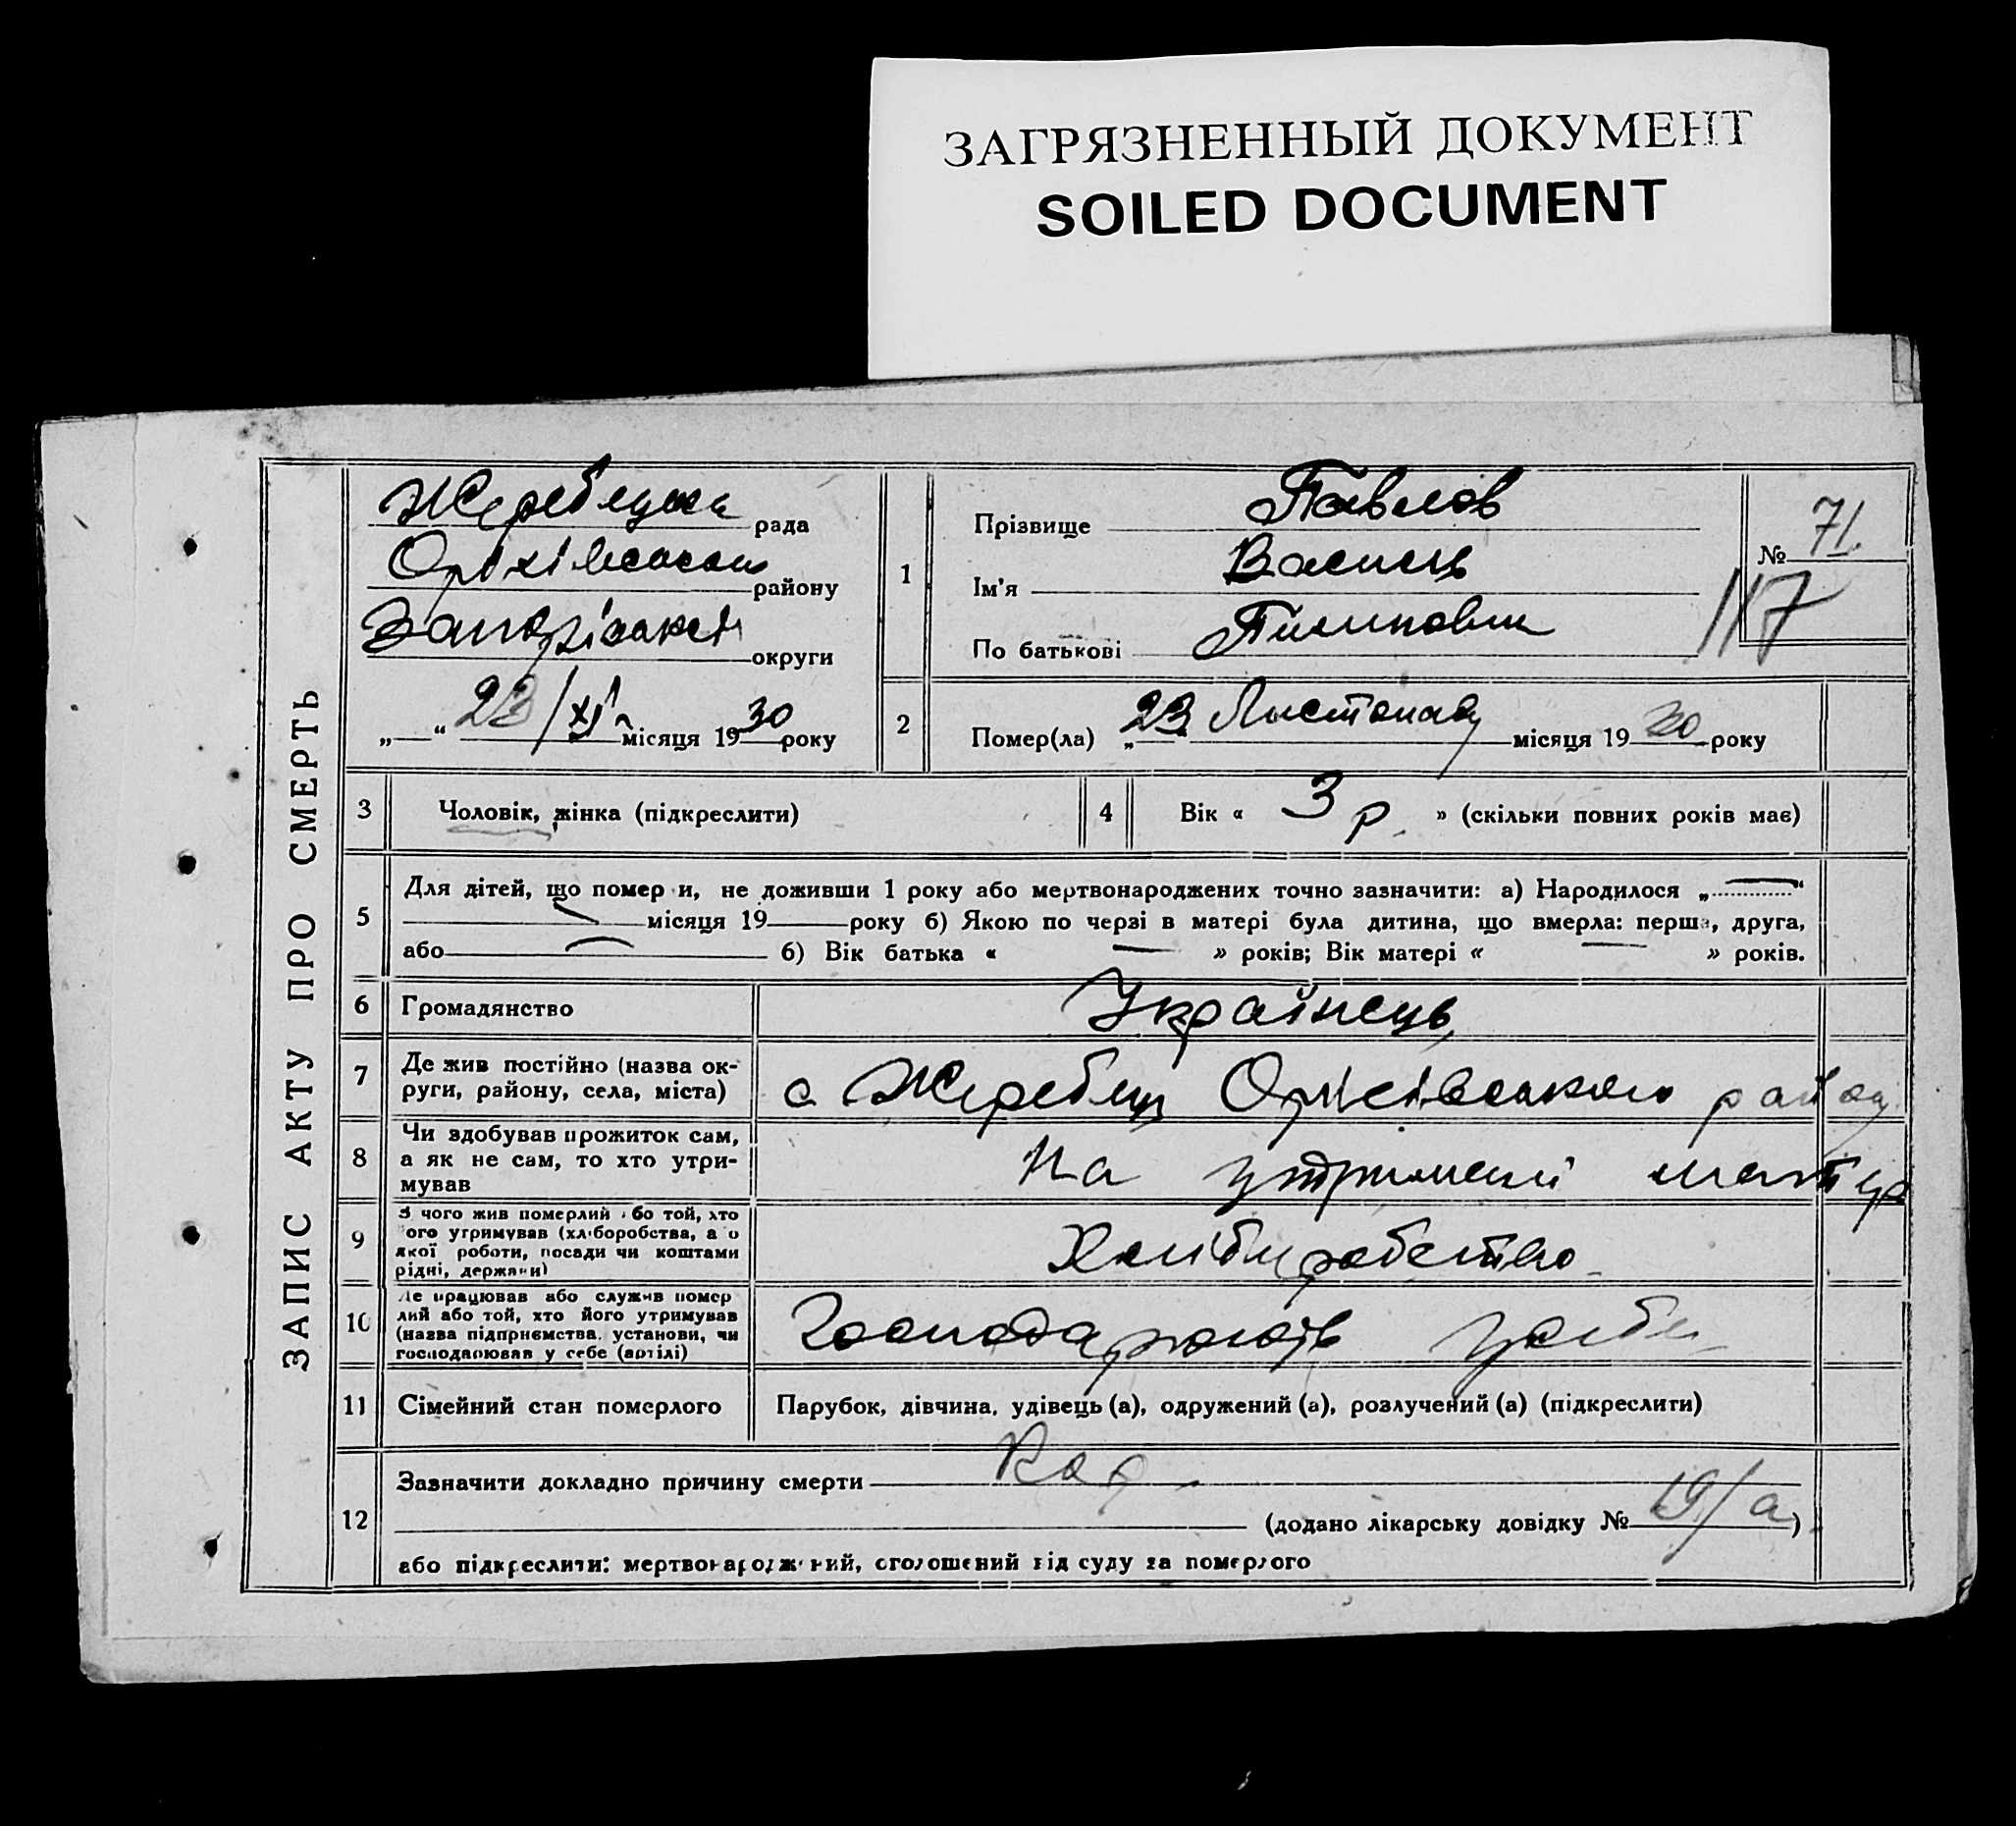 ЗАГРЯЗНЕННЫЙ ДОКУМЕНТ
SOILED DOCUMENT
ЗАПИС АКТУ ПРО СМЕРТЬ
Жеребецька рада
Оріхівського району
Запорізької округи
„—“ 23/XI місяця 1930 року
1
Прізвище Павлов
Ім'я Василь
По батькові Пилипович
№ 71.
117
2
Помер(ла) „23“ Листопаду місяця 1930 року
3 Чоловік, жінка (підкреслити)
4 Вік « 3 р. » (скільки повних років має)
5
Для дітей, що помер и, не доживши 1 року або мертвонароджених точно зазначити: а) Народилося „—“
— місяця 19 року б) Якою по черзі в матері була дитина, що вмерла: перша, друга,
або — б) Вік батька « — » років; Вік матері « — » років.
6 Громадянство Українець
7 Де жив постійно (назва ок-
руги, району, села, міста)
с Жеребець Оріхівського району
8 Чи здобував прожиток сам,
а як не сам, то хто утри-
мував
На утриманні матері
9 З чого жив померлий або той, хто
його утримував (хліборобства, а о
якої роботи, посади чи коштами
рідні, держави)
Хліборобство
10 Де працював або служив помер
лий або той, хто його утримував
(назва підприємства, установи, чи
господарював у себе (артілі)
Господарюють у себе
11 Сімейний стан померлого Парубок, дівчина, удівець (а), одружений (а), розлучений (а) (підкреслити)
12
Зазначити докладно причину смерти Кор
(додано лікарську довідку № 19/а)
або підкреслити: мертвонароджений, оголошений від суду за померлого